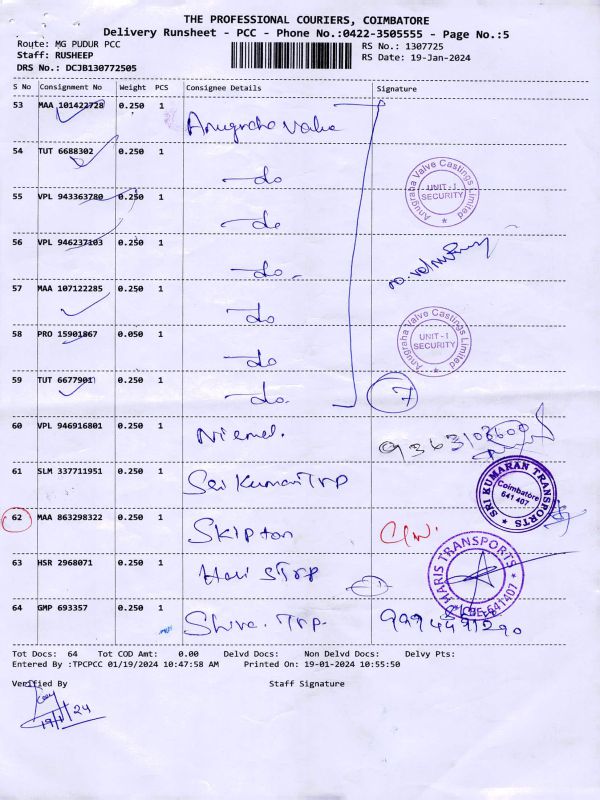 THE PROFESSIONAL COURIERS, COIMBATORE
Delivery Runsheet - PCC - Phone No.:0422-3505555 - Page No.:5
Route: MG PUDUR PCC
RS No.: 1307725
Staff: RUSHEEP
RS Date: 19-Jan-2024
DRS No.: DCJB130772505
S No Consignment No Weight PCS Consignee Details Signature
53 MAA 101422728 0.250 1 Anugraha Valve
54 TUT 6688302 0.250 1 do
Anugraha Valve Castings Limited
UNIT-I
SECURITY
55 VPL 943363780 0.250 1 do
56 VPL 946237103 0.250 1 do.
57 MAA 107122285 0.250 1 do
58 PRO 15901867 0.050 1 do
Anugraha Valve Castings Limited
UNIT-I
SECURITY
59 TUT 6677901 0.250 1 do. 7
60 VPL 946916801 0.250 1 9363103600
61 SLM 337711951 0.250 1 Sri Kumaran Trp
SRI KUMARAN TRANSPORTS
Coimbatore
641 407
62 MAA 863298322 0.250 1 Skipton
63 HSR 2968071 0.250 1 Hari s Trp
HARIS TRANSPORTS
CBE-641407
64 GMP 693357 0.250 1 Shiva. Trp. 9994491290
Tot Docs: 64 Tot COD Amt: 0.00 Delvd Docs: Non Delvd Docs: Delvy Pts:
Entered By :TPCPCC 01/19/2024 10:47:58 AM Printed On: 19-01-2024 10:55:50
Verified By Staff Signature
19/1/24